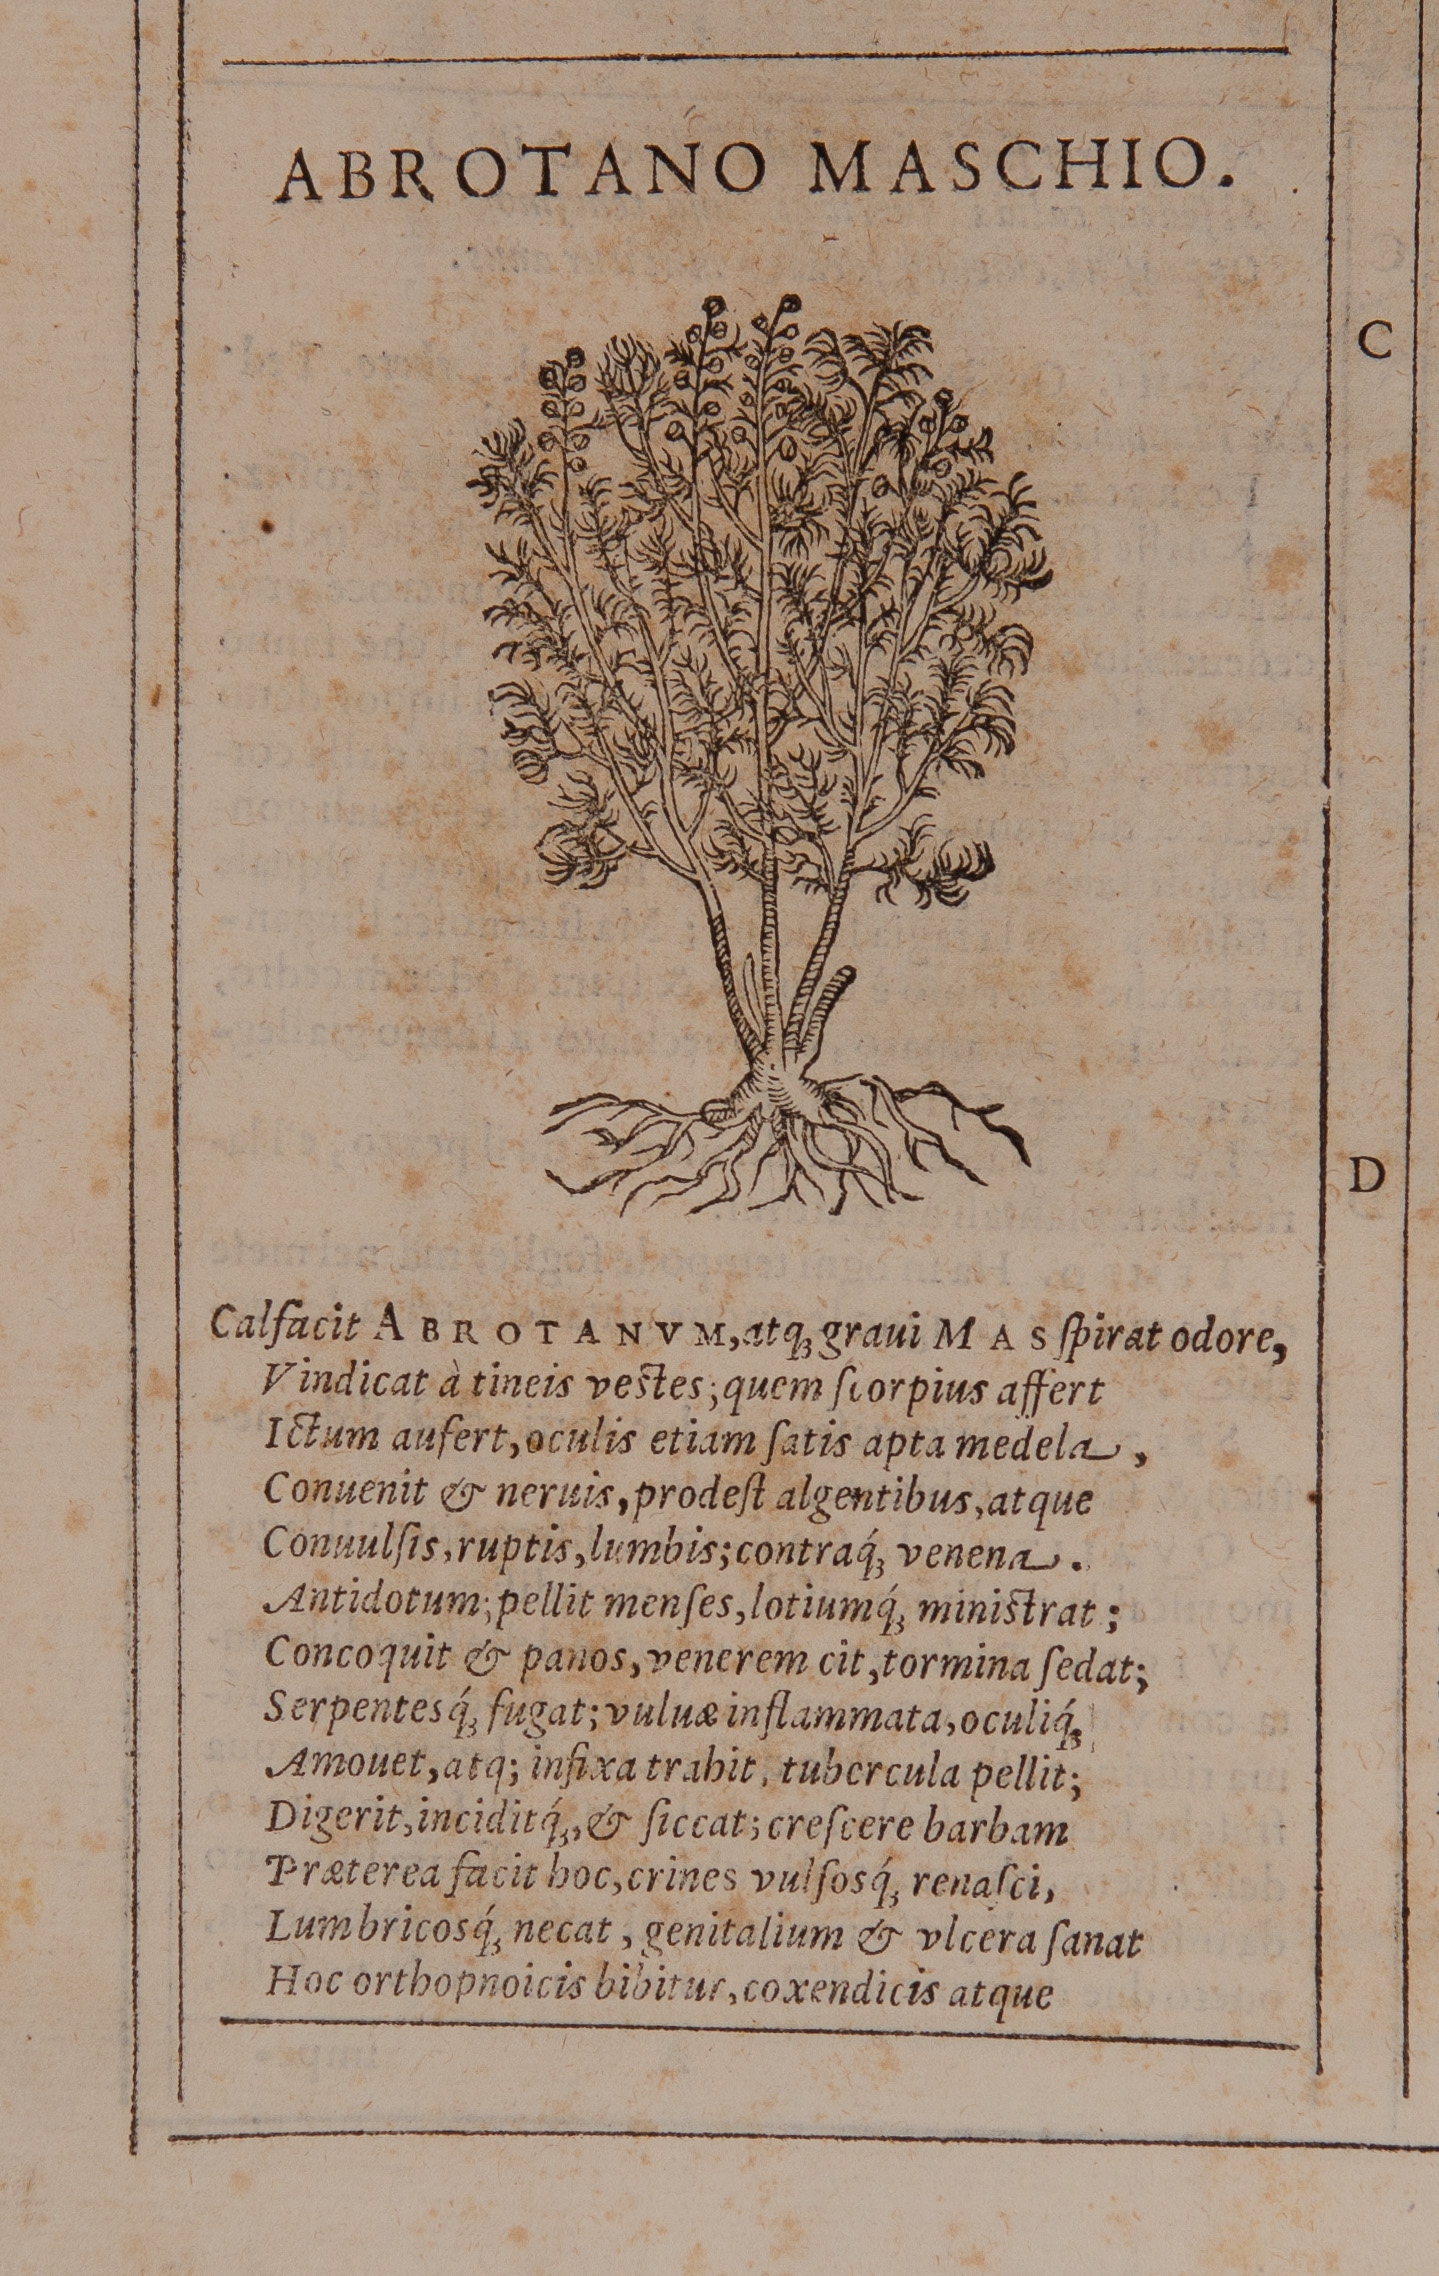 ABROTANO MASCHIO.
C
D
Calfacit ABROTANVM, atq; graui MAS ſpirat odore,
Vindicat à tineis veſtes; quem ſcorpius affert
Ictum aufert, oculis etiam ſatis apta medela,
Conuenit & neruis, prodeſt algentibus, atque
Conuulſis, ruptis, lumbis; contraq́; venena.
Antidotum; pellit menſes, lotiumq́; miniſtrat;
Concoquit & panos, venerem cit, tormina ſedat;
Serpentesq́; fugat; vuluæ inflammata, oculiq́;
Amouet, atq; infixa trahit, tubercula pellit;
Digerit, inciditq́;, & ſiccat; creſcere barbam
Præterea facit hoc, crines vulſosq́; renaſci,
Lumbricosq́; necat, genitalium & vlcera ſanat
Hoc orthopnoicis bibitur, coxendicis atque